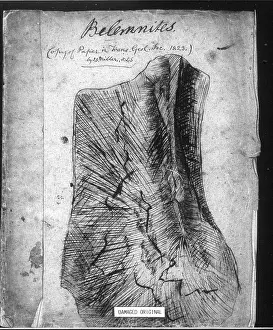 Belemnites.
(Copy of Paper in Trans. Geol. Soc. 1823.)
by Miller, A.L.S.
DAMAGED ORIGINAL